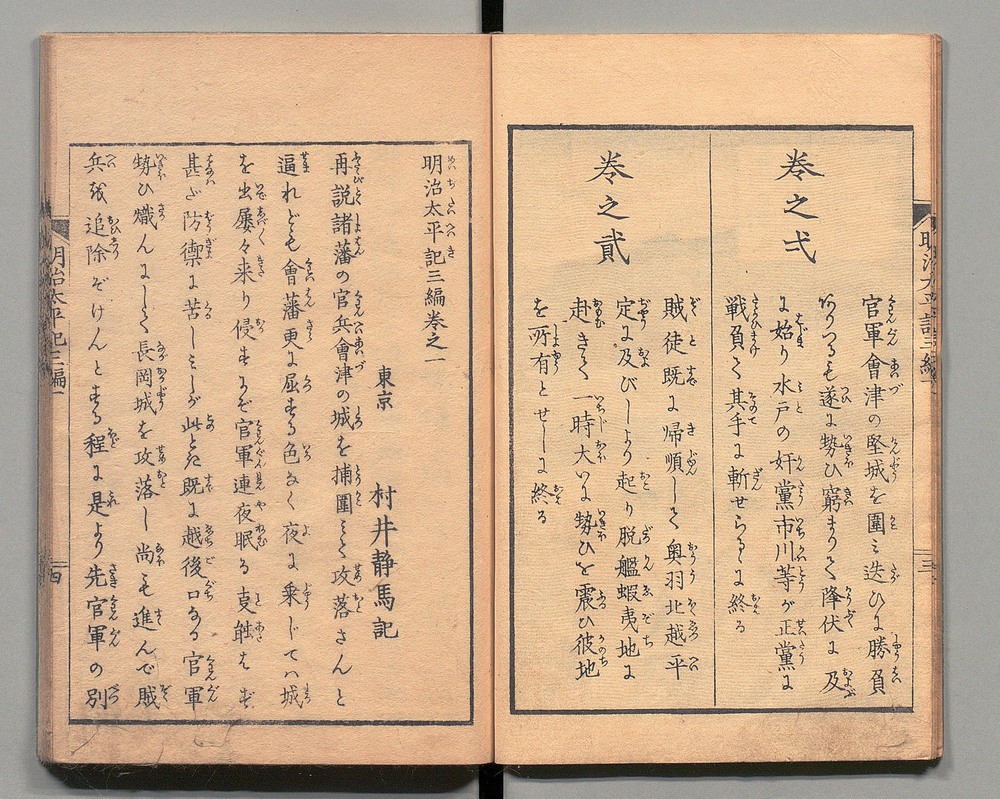 巻之弌
官軍會津の堅城を圍ミ迭ひに勝負
ありつるも遂に勢ひ窮まりて降伏に及
に始り水戸の奸黨市川等が正黨に
戦負て其手に斬せらるゝに終る
巻之貳
賊徒既に帰順して奥羽北越平
定に及びしより起り脱艦蝦夷地に
赴きて一時大いに勢ひを震ひ彼地
を所有とせしに終る
明治太平記三編一
三
明治太平記三編巻之一
東京 村井静馬記
再説諸藩の官兵會津の城を捕圍ミて攻落さんと
逼れども會藩更に屈する色なく夜に乗じてハ城
を出屡々来り侵すにぞ官軍連夜眠る事能はず
甚だ防禦に苦しミしが此とき既に越後口なる官軍
勢ひ熾んにして長岡城を攻落し尚も進んで賊
兵を追除ぞけんとする程に是より先官軍の別
明治太平記三編一
四